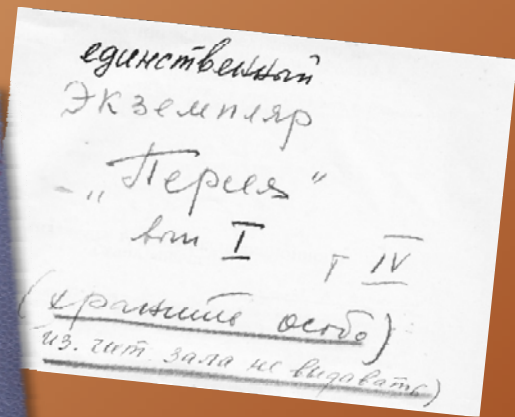 единственный
Экземпляр
- „Персея"
вып I т IV
(хранить особо)
из. чит. зала не выдавать)